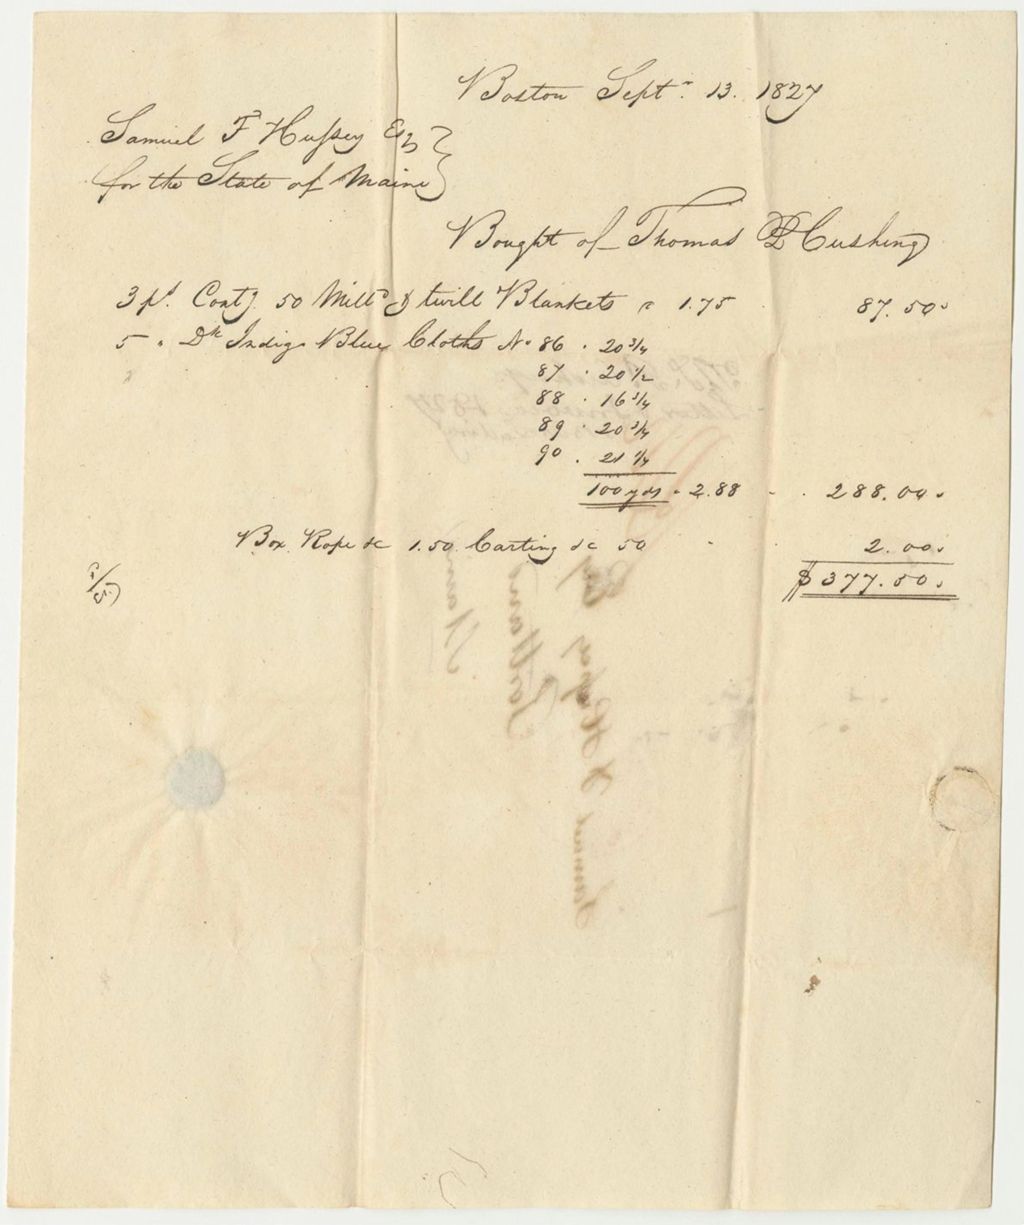 Boston Septr. 13. 1827
Samuel F Hussey Esq
for the State of Maine
Bought of Thomas Cushing
3 ps. Contg. 50 Milld twill Blankets a 1.75 87.50
5 " Dk Indigo Blue Cloths No 86 . 20 3/4
87 . 20 1/2
88 . 16 3/4
89 . 20 3/4
90 . 21 1/4
100 yds - 2.88 288.00
Box. Rope &c 1.50. Carting &c 50 2.00
$377.50
Samuel F Hussey Esq
Portland
Maine